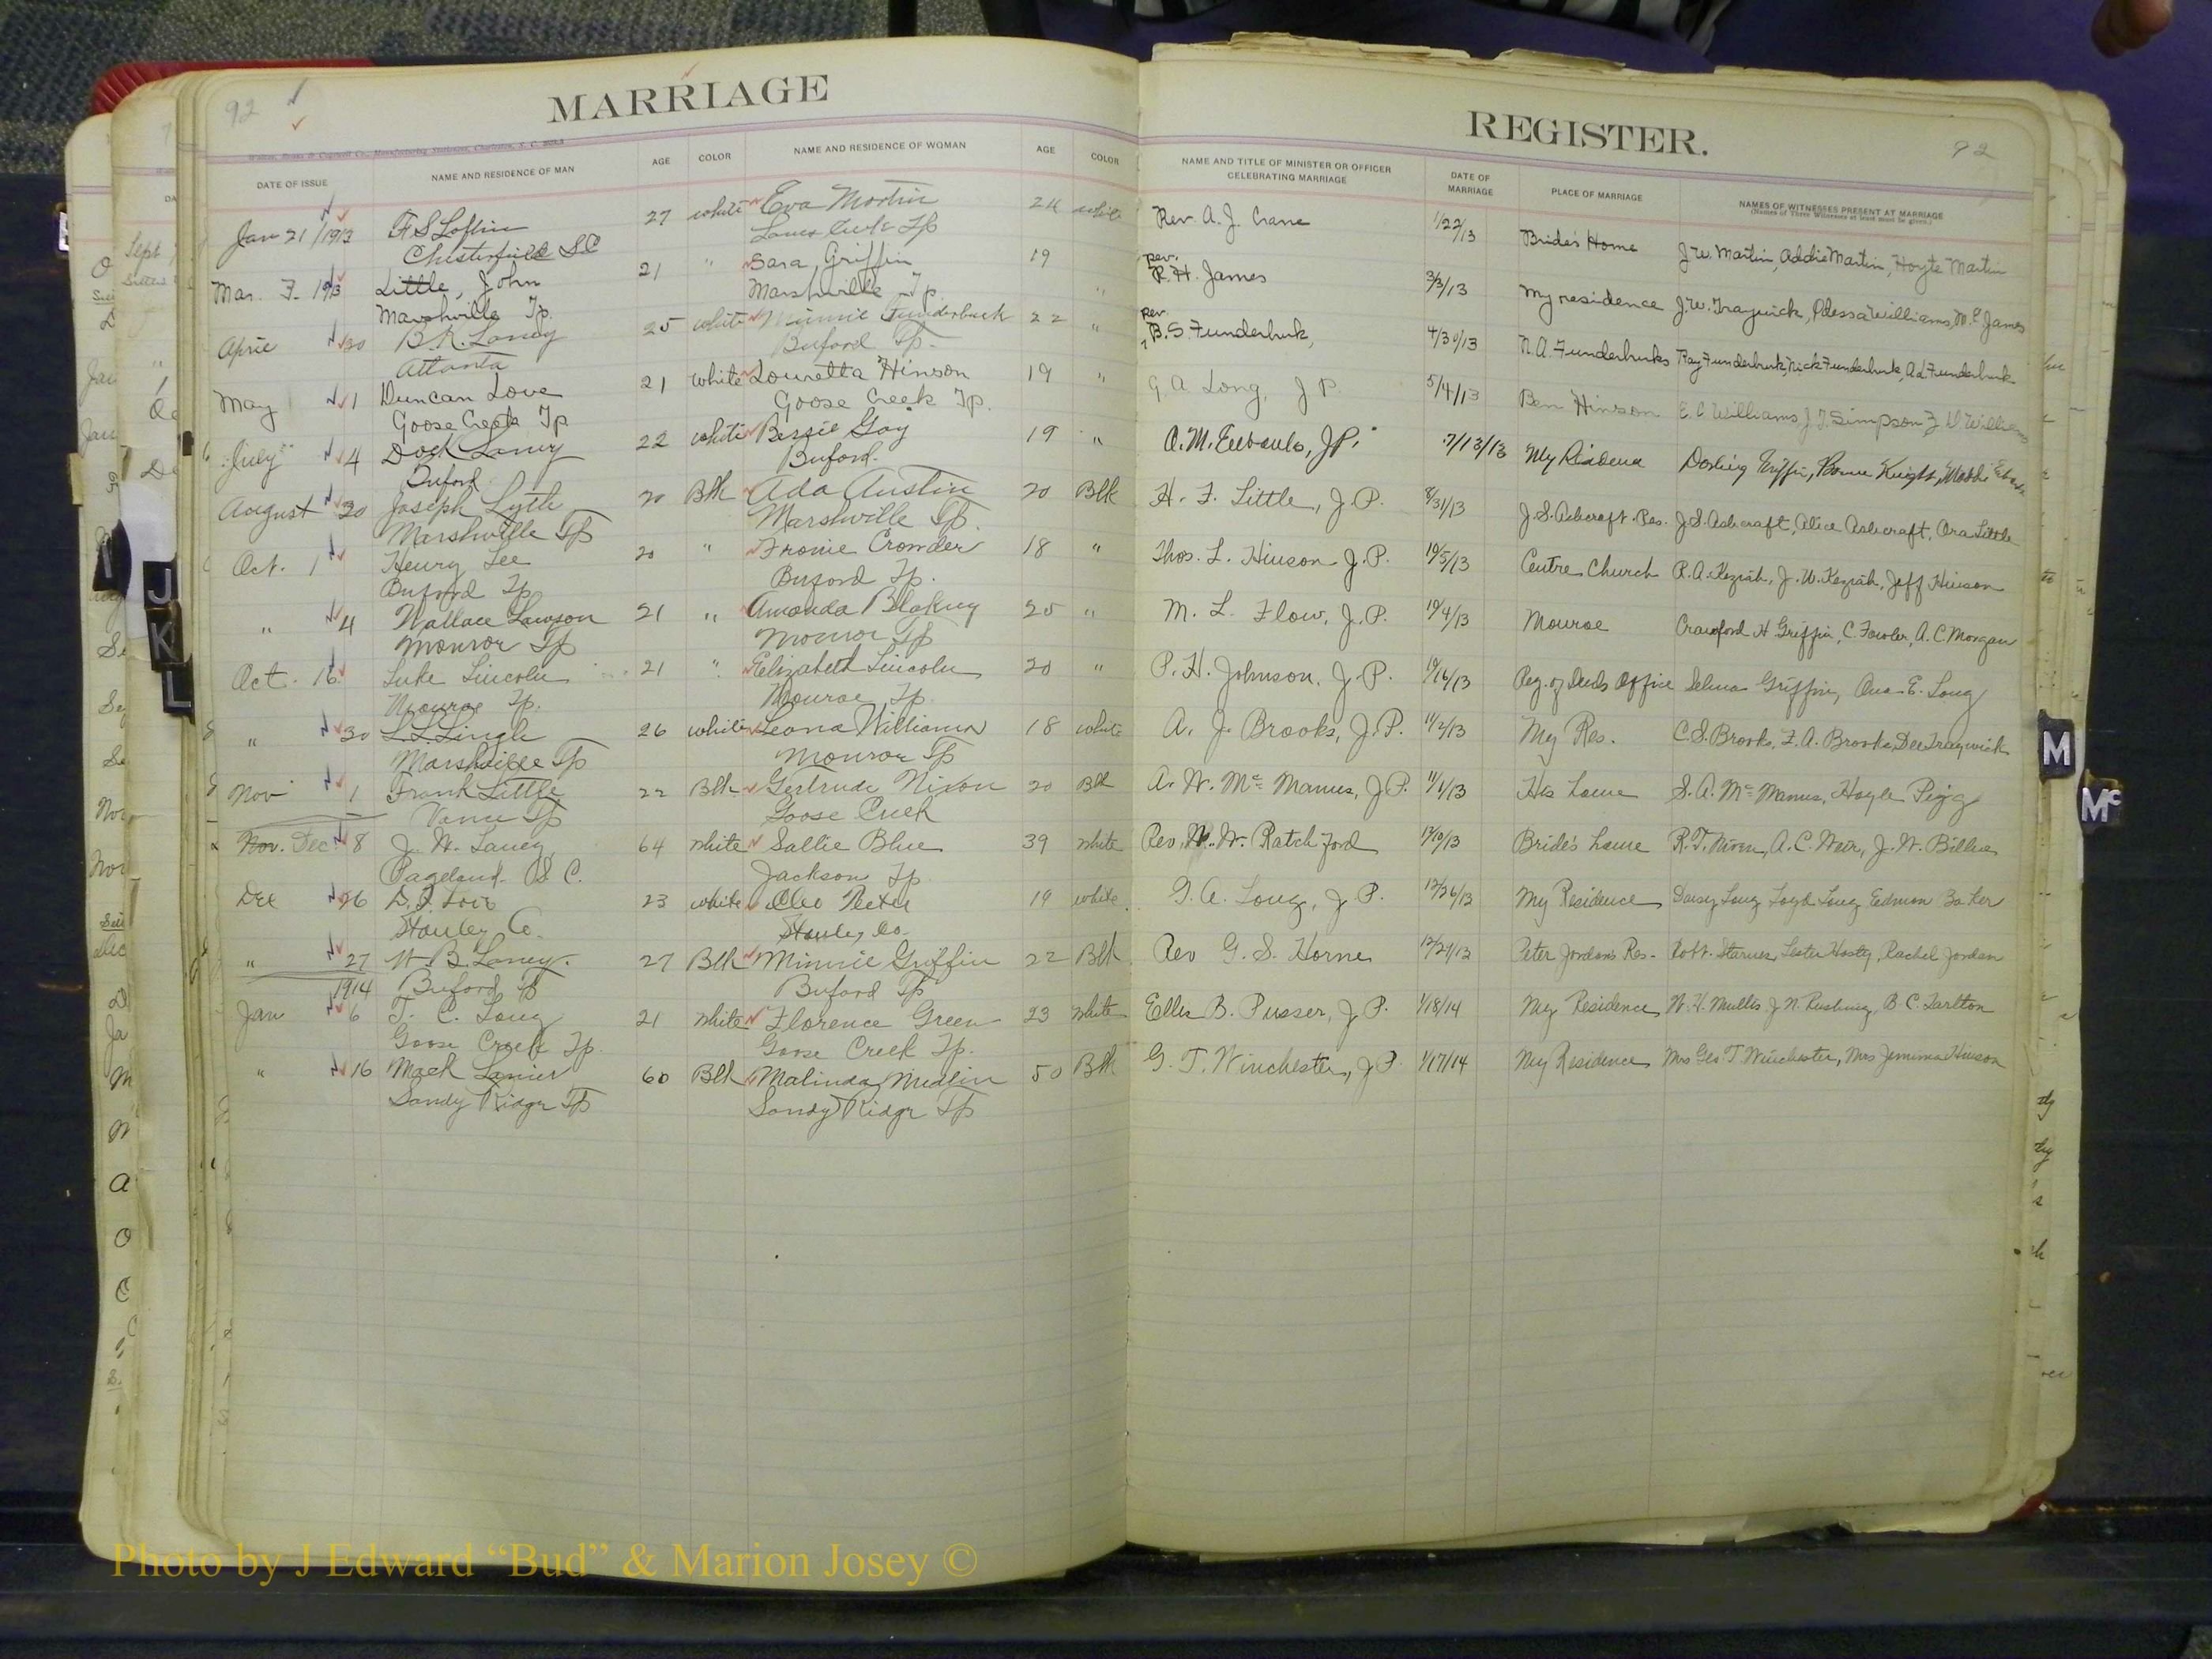 92
MARRIAGE
REGISTER.
92
DATE OF ISSUE NAME AND RESIDENCE OF MAN AGE COLOR NAME AND RESIDENCE OF WOMAN AGE COLOR NAME AND TITLE OF MINISTER OR OFFICER CELEBRATING MARRIAGE DATE OF MARRIAGE PLACE OF MARRIAGE NAMES OF WITNESSES PRESENT AT MARRIAGE
(Names of Three Witnesses at least must be given.)
Jan 21/1913 Loflin 27 white Eva Martin 24 white Rev. A. J. Crane 1/22/13 Bride's Home J. W. Martin, Addie Martin, Hoyte Martin
Chesterfield SC Lanes Creek Tp
Mar. 1913 Little, John 21 " Sara Griffin 19 " Rev. R. H. James 3/3/13 My residence J. W. Traywick, Williams, James
Marshville Tp. Marshville Tp
April 30 B. R. Laney 25 white Minnie Funderburk 22 " Rev. B. S. Funderburk, 4/30/13 N. A. Funderburks Ray Funderburk, Nick Funderburk, Ad Funderburk
Atlanta Buford Tp.
May 1 Duncan Love 21 white Louretta Hinson 19 " G A Long, J P. 5/4/13 Ben Hinson E. C Williams J. T. Simpson Williams
Goose Creek Tp Goose Creek Tp.
July 4 Dock Laney 22 white Bessie Gay 19 " A. M. Eubanks, JP. 7/13/13 My Residence Griffin, Knight,
Buford Buford.
August 30 Joseph Lytle 20 Blk Ada Austin 20 Blk H. F. Little, J. P. 8/31/13 J. S. Ashcraft Res. J. S. Ashcraft, Alice Ashcraft, Ora Little
Marshville Tp Marshville Tp.
Oct. 1 Henry Lee 20 " Fronie Crowder 18 " Thos. L. Hinson J. P. 10/5/13 Centre Church R. A. Keziah, J. W. Keziah, Jeff Hinson
Buford Tp Buford Tp.
" 4 Wallace Lawson 21 " Amanda Blakney 20 " M. L. Flow, J. P. 10/4/13 Monroe Crawford H Griffin, C. Fowler, A. C. Morgan
Monroe Tp Monroe Tp
Oct. 16 Luke Lincoln 21 " Elizabeth Lincoln 20 " P. H. Johnson, J. P. 10/16/13 Reg. of Deeds Office Selma Griffin, E. Long
Monroe Tp. Monroe Tp.
" 30 Lingle 26 white Leona Williams 18 white A. J. Brooks, J. P. 11/2/13 My Res. C. S. Brooks, F. A. Brooks, Dee Traywick
Marshville Tp Monroe Tp
Nov 1 Frank Little 22 Blk Gertrude Nixon 20 Blk A. W. Mc Manus, J.P. 11/1/13 His home S. A. Mc Manus, Hoyle Pigg
Vance Tp Goose Creek
Nov. Dec. 8 J. W. Laney 64 white Sallie Blue 39 white Rev. W. W. Ratchford 12/10/13 Bride's home R. T. Niven, A. C. Weir, J. W.
Pageland S. C. Jackson Tp
Dec 26 23 white Cleo 19 white G. A. Long, J P. 12/26/13 My Residence Daisy Long Loyd Long Edmon Baker
Stanley Co. Stanley Co.
" 27 W. B. Laney. 27 Blk Minnie Griffin 22 Blk Rev G. S. Horne 12/27/13 Peter Jordan's Res. Robt. Starnes, Lester Hasty, Rachel Jordan
1914 Buford Tp Buford Tp
Jan 6 T. C. Long 21 white Florence Green 23 white Ellis B. Pusser, J P. 1/18/14 My Residence W. H. Mullis J N. Rushing, B C. Tarlton
Goose Creek Tp. Goose Creek Tp.
" 16 Mack Lanier 60 Blk Malinda Medlin 50 Blk G. T. Winchester, J P. 1/17/14 My Residence Mrs Geo T. Winchester, Mrs Jemima Hinson
Sandy Ridge Tp Sandy Ridge Tp
J
K
L
M
Mc
Photo by J Edward “Bud” & Marion Josey ©